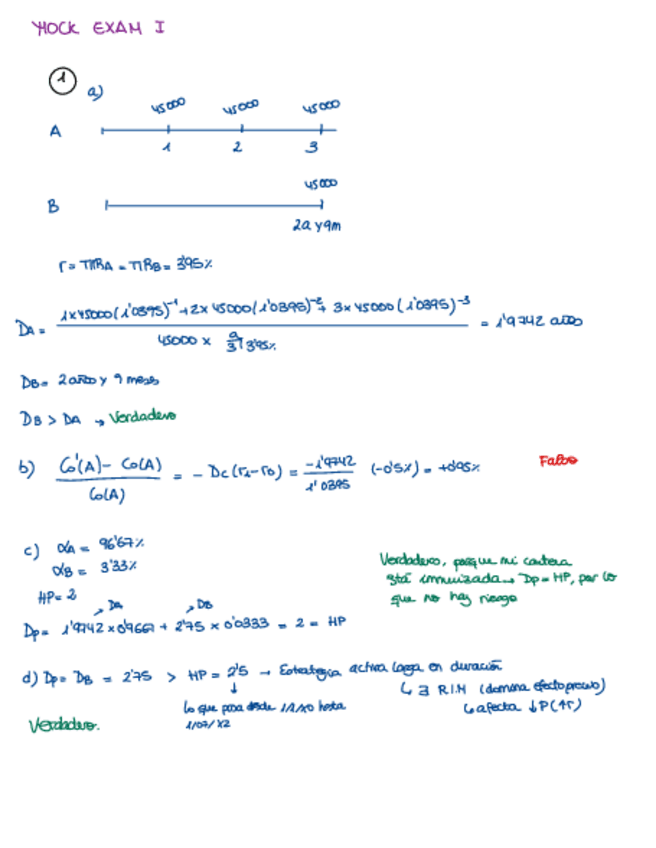 MOCK EXAM I
1 a)
45000 45000 45000
A
1 2 3
45000
B
2a y 9m
r = TIRA = TIRB = 3'95%
DA = 1x45000(1'0395)⁻¹ + 2x45000(1'0395)⁻² + 3x45000(1'0395)⁻³ / 45000 x a3┐3'95% = 1'9742 años
DB = 2 años y 9 meses
DB > DA → Verdadero
b) Co'(A) - Co(A) / Co(A) = - Dc(r1-r0) = -1'9742 / 1'0395 (-0'5%) = +0'95% Falso
c) αA = 96'67%
αB = 3'33%
HP = 2
DA DB
Dp = 1'9742x0'9667 + 2'75x0'0333 = 2 = HP
Verdadero, porque mi cartera
está inmunizada → Dp = HP, por lo
que no hay riesgo
d) Dp = DB = 2'75 > HP = 2'5 → Estrategia activa larga en duración
↓
lo que pasa desde 1/1/X0 hasta
1/07/X2
↳ ∃ R.I.M (domina efecto precio)
↳ afecta ↓P (↑r)
Verdadero.